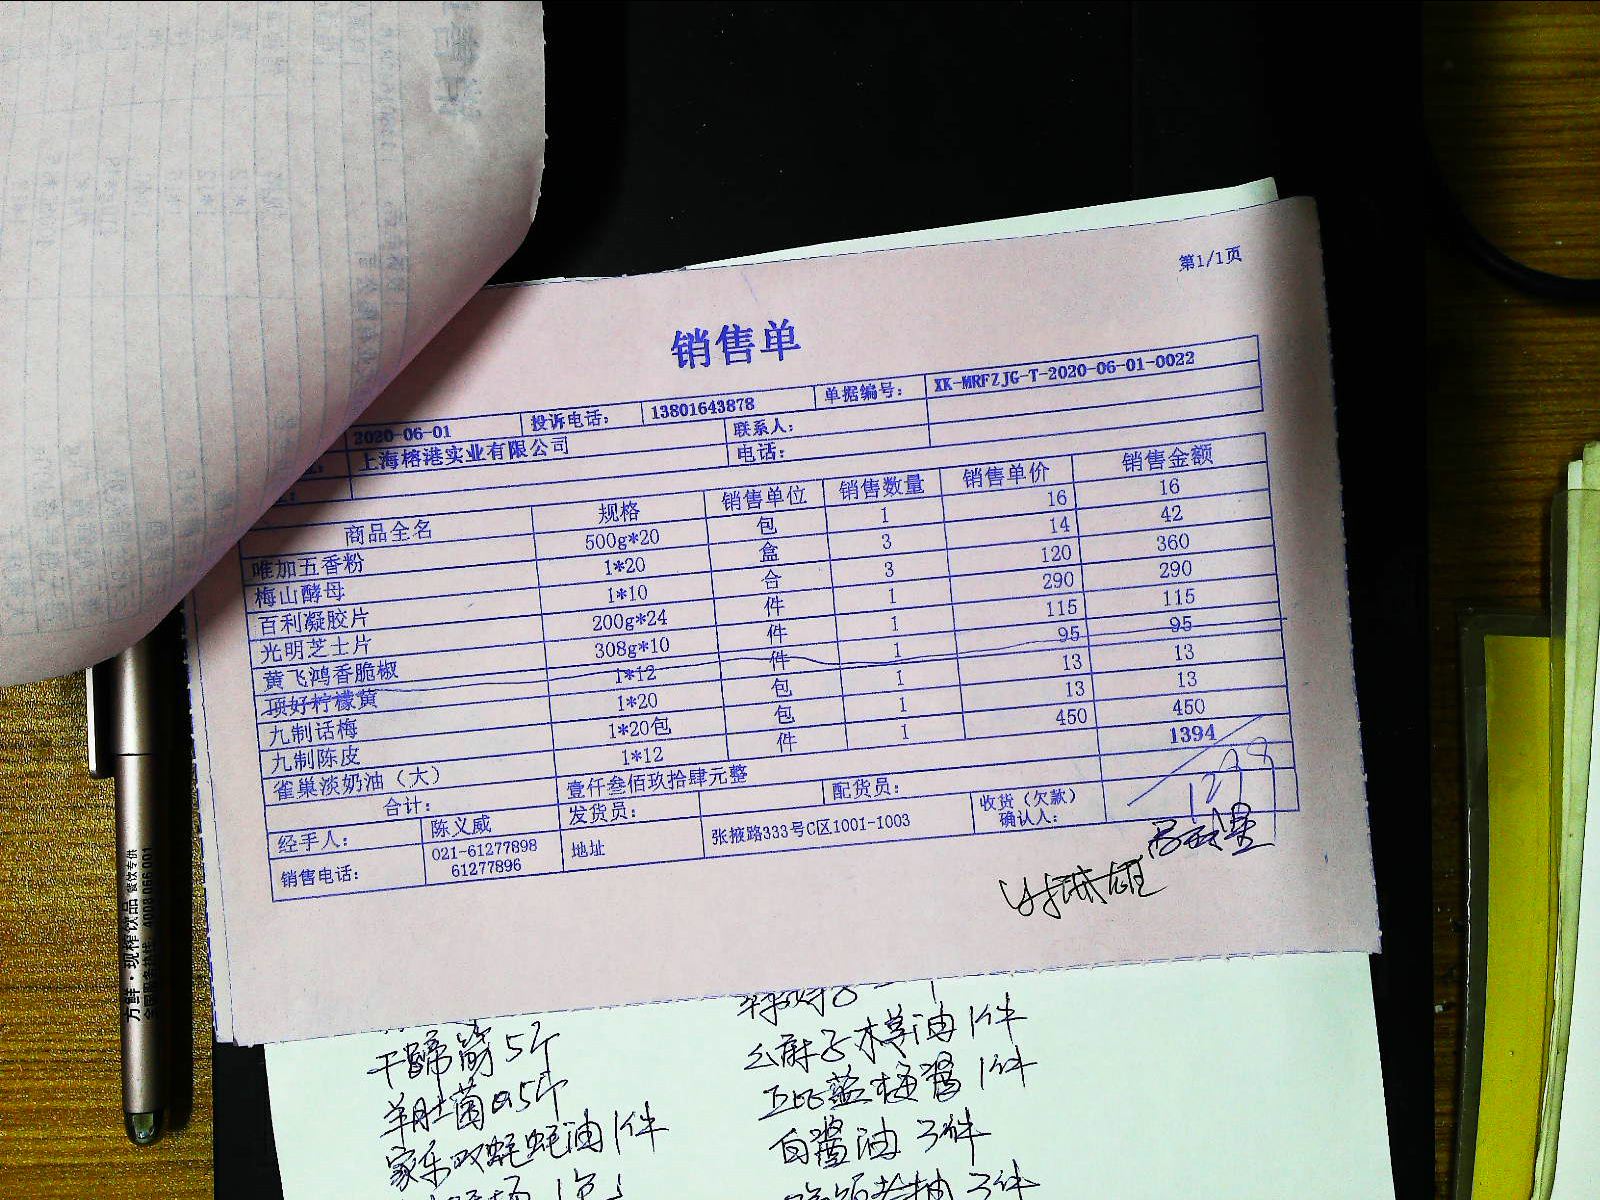 第1/1页
销售单
2020-06-01 投诉电话: 13801643878 单据编号: XK-MRFZJG-T-2020-06-01-0022
上海榕港实业有限公司 联系人:
电话:
商品全名 规格 销售单位 销售数量 销售单价 销售金额
唯加五香粉 500g*20 包 1 16 16
梅山酵母 1*20 盒 3 14 42
百利凝胶片 1*10 合 3 120 360
光明芝士片 200g*24 件 1 290 290
黄飞鸿香脆椒 308g*10 件 1 115 115
顶好柠檬黄 1*12 件 1 95 95
九制话梅 1*20 包 1 13 13
九制陈皮 1*20包 包 1 13 13
雀巢淡奶油（大） 1*12 件 1 450 450
合计: 壹仟叁佰玖拾肆元整 1394
1299
经手人: 陈义威 发货员: 配货员: 收货（欠款）确认人:
销售电话: 021-61277898 61277896 地址 张掖路333号C区1001-1003
方鲜·现榨饮品 餐饮专供
全国服务热线: 4008 066 001
干蹄筋5个
羊肚菌 5个
家乐 蚝油1件
木 油1件
蓝梅酱1件
白酱油3件
3件